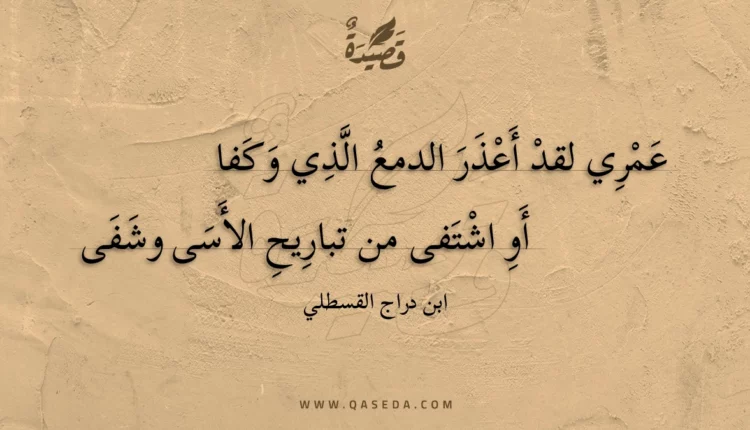 قَصِيدَةٌ
عَمْرِي لقدْ أَعْذَرَ الدمعُ الَّذِي وَكَفا
أَوِ اشْتَفى من تبارِيحِ الأَسَى وشَفَى
ابن دراج القسطلي
WWW.QASEDA.COM